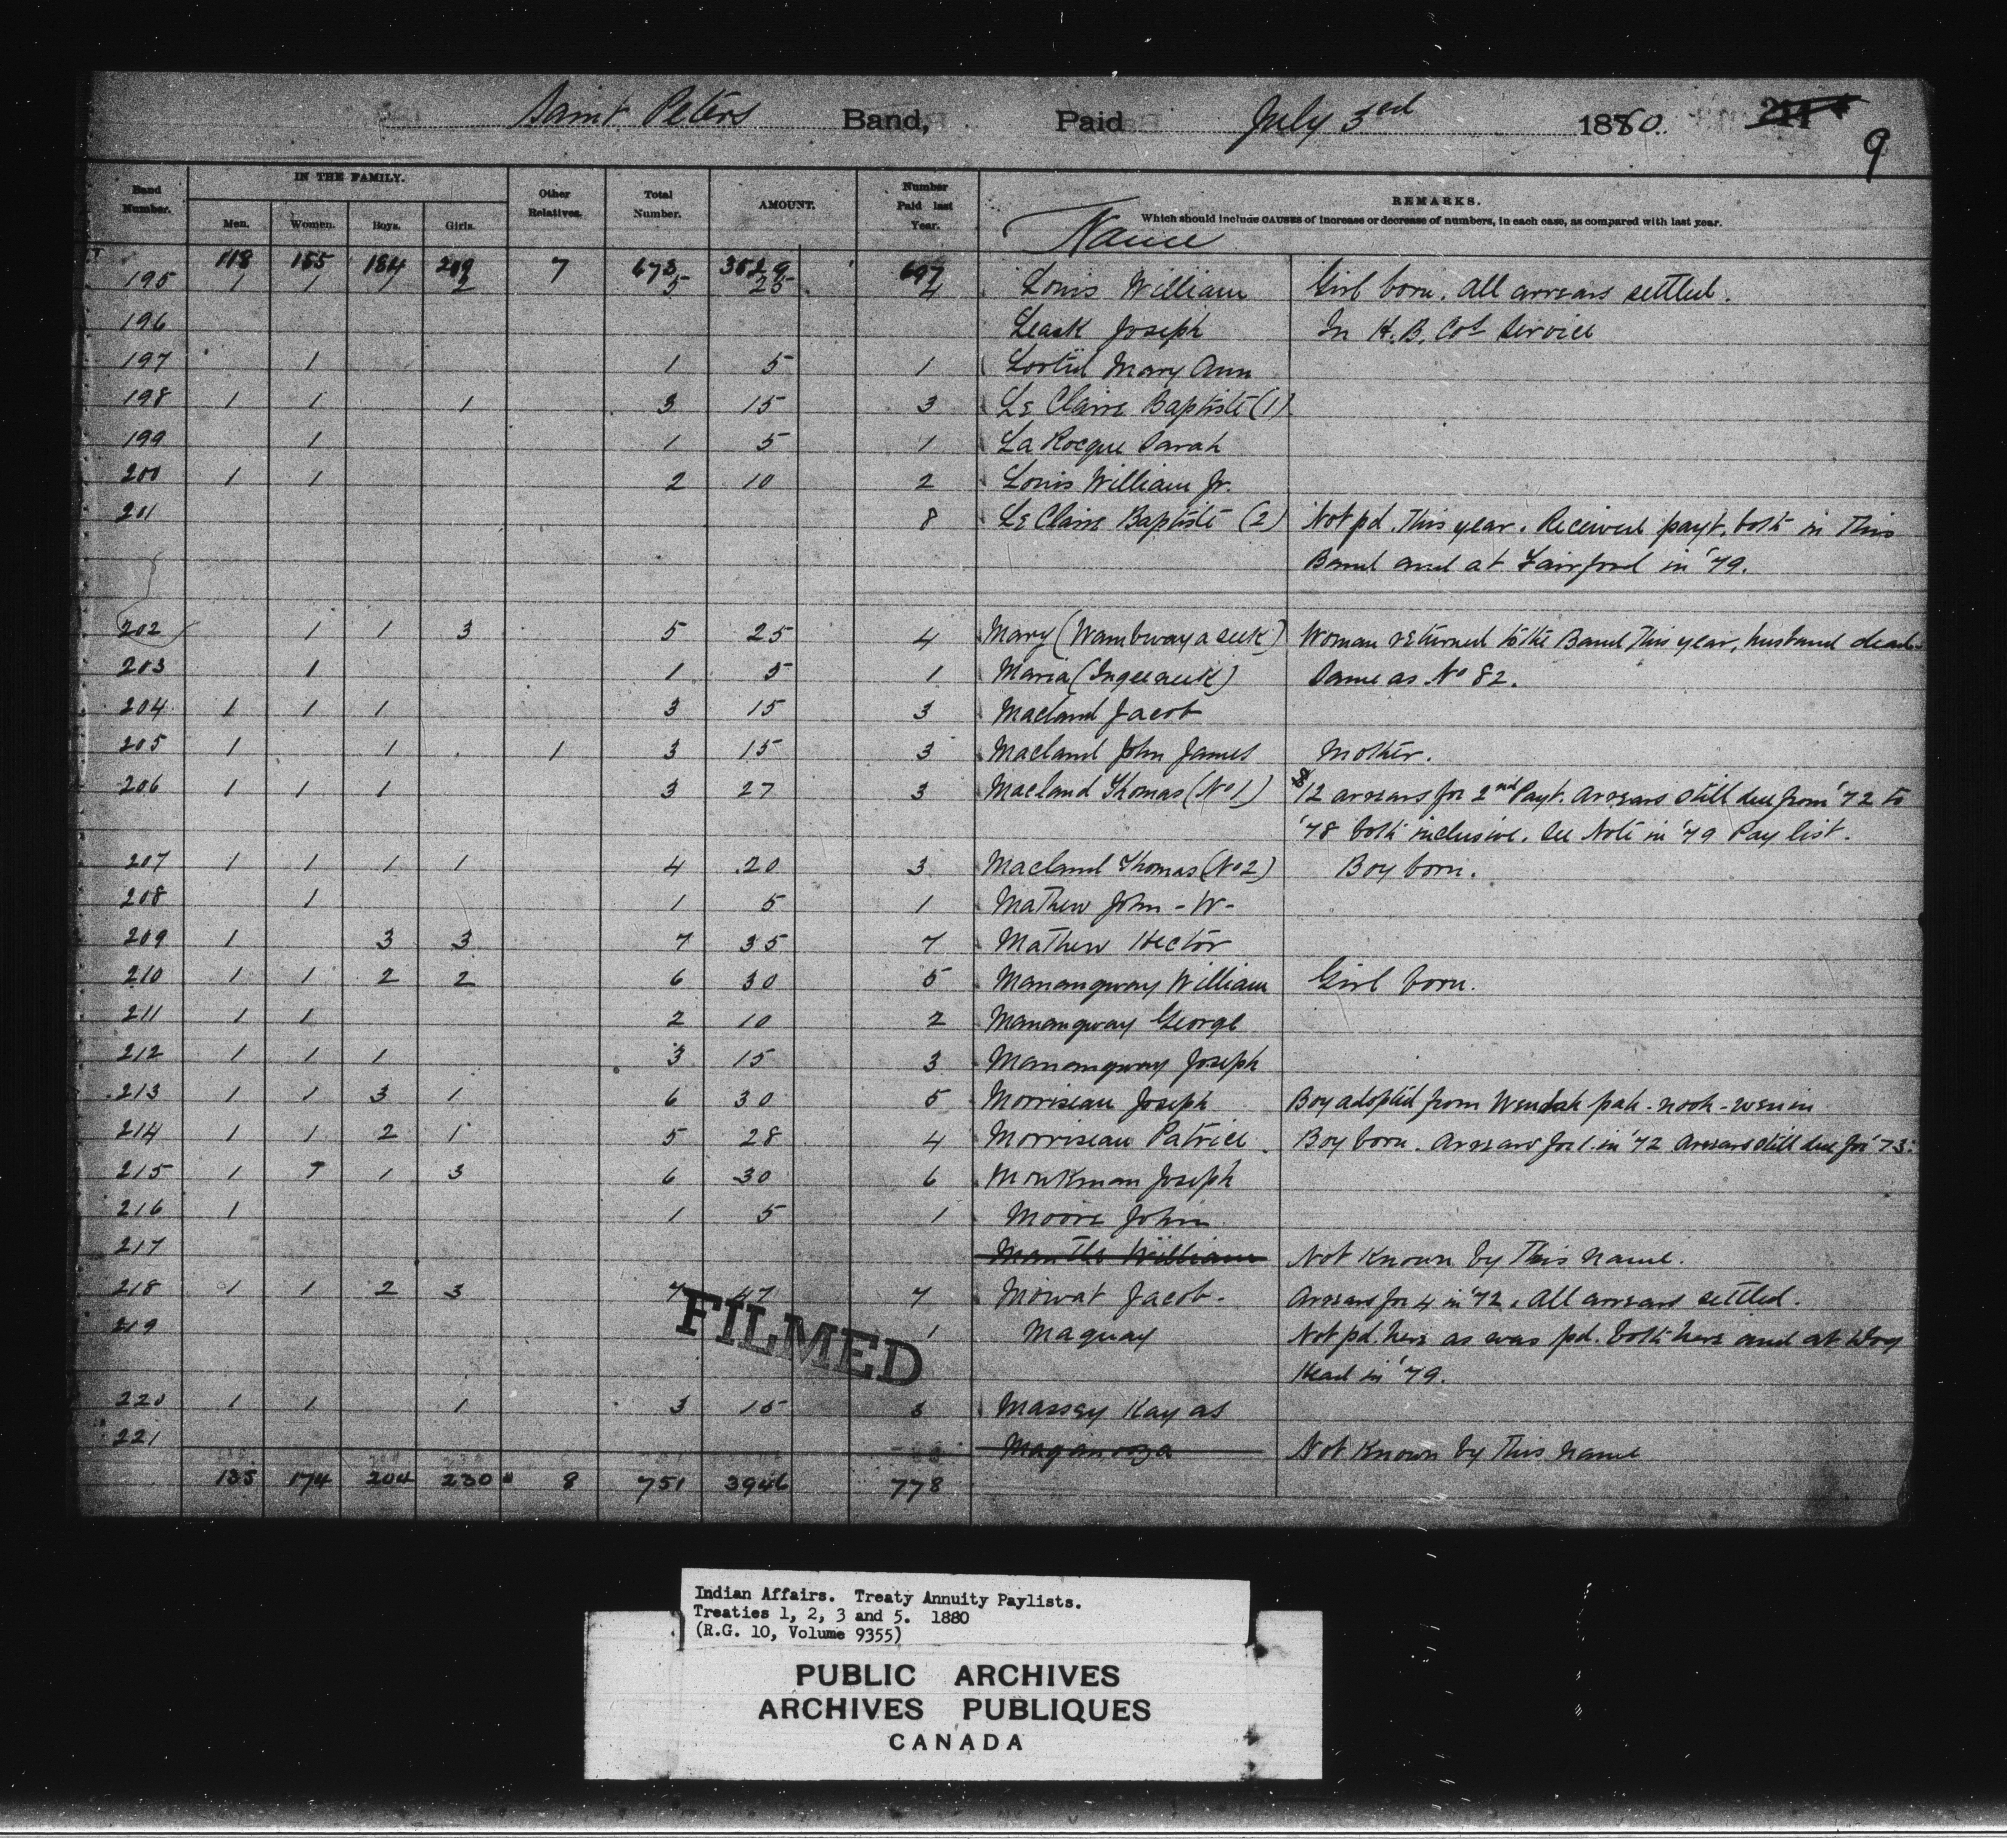 Saint Peters Band, Paid July 3rd 1880. 211
9
Band Number. IN THE FAMILY. Men. Women. Boys. Girls. Other Relatives. Total Number. AMOUNT. Number Paid last Year. Name REMARKS.
Which should include CAUSES of increase or decrease of numbers, in each case, as compared with last year.
118 155 184 209 7 673 3529 697
195 1 1 1 2 5 25 4 Louis William Girl born. All arrears settled.
196 Leask Joseph In H.B. Cos Service
197 1 1 5 1 Mary Ann
198 1 1 1 3 15 3 Le Claire Baptiste (1)
199 1 1 5 1 La Rocque Sarah
200 1 1 2 10 2 Louis William Jr.
201 8 Le Claire Baptiste (2) Not pd. this year. Received payt. both in this
Band and at Fairford in '79.
202 1 1 3 5 25 4 Mary (Wambwayaseek) Woman returned to the Band this year, husband dead
203 1 1 5 1 Maria Same as No 82.
204 1 1 1 3 15 3 Macland Jacob
205 1 1 1 3 15 3 Macland John James Mother.
206 1 1 1 3 27 3 Macland Thomas (No 1) $12 arrears for 2nd Payt. Arrears still due from '72 to
'78 both inclusive. See Note in '79 Pay list.
207 1 1 1 1 4 20 3 Macland Thomas (No 2) Boy born.
208 1 1 5 1 Mathew John - W -
209 1 3 3 7 35 7 Mathew Hector
210 1 1 2 2 6 30 5 Manangway William Girl born.
211 1 1 2 10 2 Manangway George
212 1 1 1 3 15 3 Manangway Joseph
213 1 1 3 1 6 30 5 Morriseau Joseph Boy adopted from Wendak pah-nook-wenin
214 1 1 2 1 5 28 4 Morriseau Patrice Boy born. Arrears for 1 in '72 Arrears still due for '73.
215 1 1 1 3 6 30 6 Monkman Joseph
216 1 1 5 1 Moore John
217 William Not Known by this name.
218 1 1 2 3 7 47 7 Mowat Jacob. Arrears for 4 in '72. All arrears settled.
219 1 Maquay Not pd. here as was pd. both here and at Dog
Head in '79.
220 1 1 1 3 15 3 Massey Kay as
221 Not Known by this name
135 174 204 230 8 751 3946 778
FILMED
Indian Affairs. Treaty Annuity Paylists.
Treaties 1, 2, 3 and 5. 1880
(R.G. 10, Volume 9355)
PUBLIC ARCHIVES
ARCHIVES PUBLIQUES
CANADA